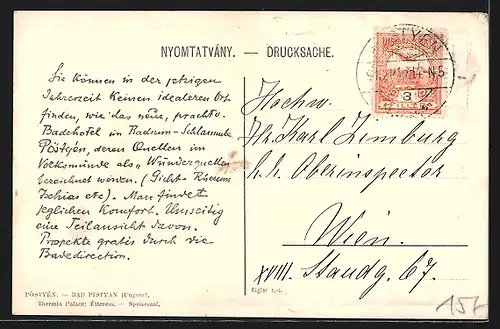 NYOMTATVÁNY. — DRUCKSACHE.
Sie können in der jetzigen
Jahreszeit keinen idealeren Ort
finden, wie das neue, prachtv.
Badehotel im Radium-Schlammbad
Pöstyén, deren Quellen im
Volksmunde als „Wunderquellen"
bezeichnet werden. (Gicht- Rheuma
Ischias etc). Man findet
jeglichen Komfort. Umseitig
eine Teilansicht davon.
Prospekte gratis durch die
Badedirection.
PÖSTYÉN. — BAD PISTYAN (Ungarn).
Thermia Palace: Étterem. — Speisesaal.
PÖSTYÉN
Hochw.
Hr. Karl Zimburg
k. k. Oberinspector
Wien.
XVIII. Staudg. 67.
Rigler r.-t.
15.-